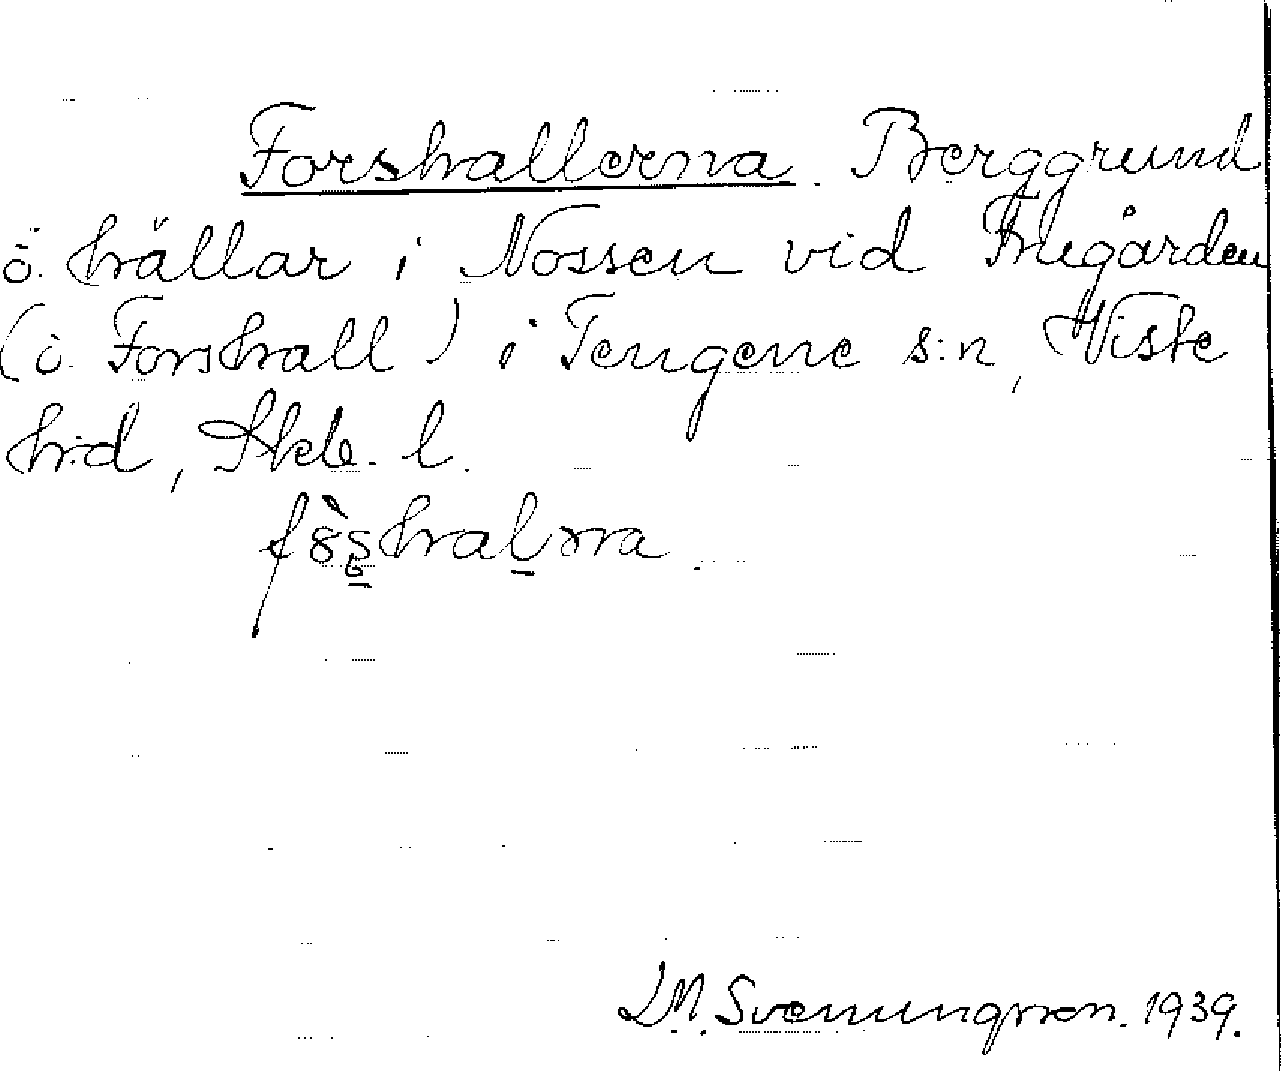 Forshallerna. Berggrund
o. hällar i Nossen vid Frugården
(o. Forshall) i Tengene s:n, Viste
h:d, Skb. l.
J. M. Svenungsson. 1939.